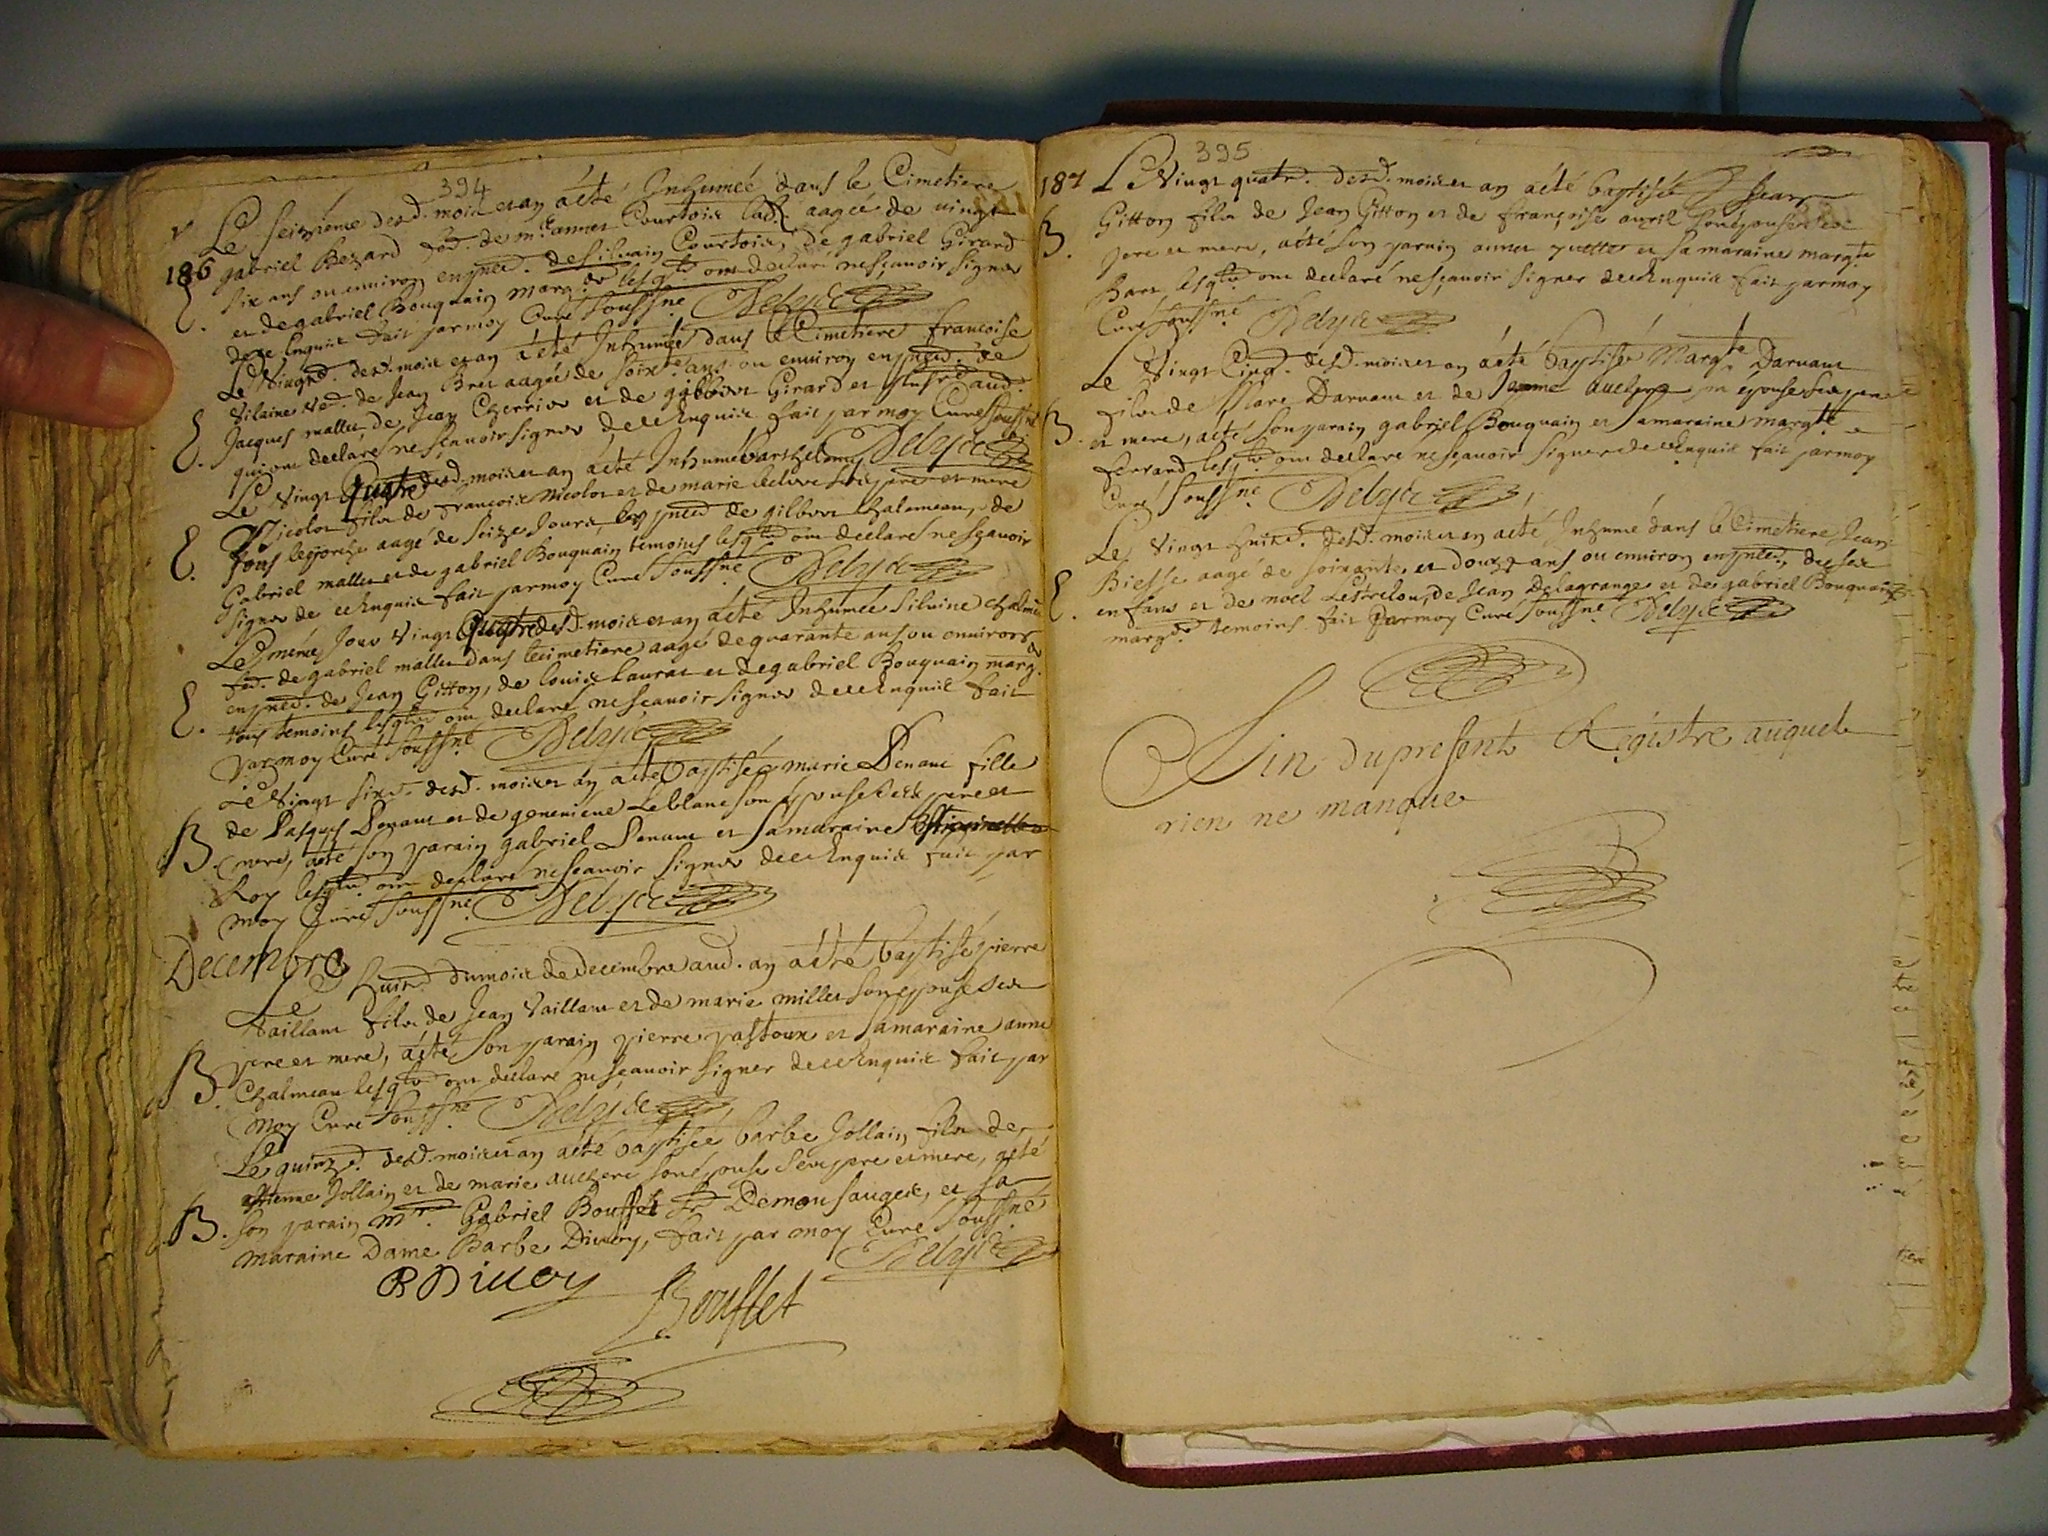 394
Le seizieme desd. mois et an a été Inhumée dans le Cimetiere
186 gabriel Bezard de Courtois aagée de vingt
six ans ou environ en pnce. de silvain Courtois, de gabriel Girard
et de gabriel Bouquain marg. lesqls ont declaré ne sçavoir signer
de ce Enquis fait par moy Curé soussné Delyée
Le Vingt. desd. mois et an a été Inhumée dans le Cimetiere francoise
Vilaine ve. de Jean Bret aagée de soixte ans ou environ en pnce. de
E. Jacques mallet de Jean Cherrier et de gabriel Girard et
qui ont declaré ne sçavoir signer de ce Enquis fait par moy Curé soussné
Delyée
Le Vingt quatre desd. mois et an a été Inhumé Barthelemy
Nicolot fils de francois Nicolot et de marie ses pere et mere
E. sous le porche aagé de seize Jours, en pnce de gilbert chalemeau, de
Gabriel mallet et de gabriel Bouquain temoins lesqls ont declaré ne sçavoir
signer de ce Enquis fait par moy Curé soussné Delyée
Le méme Jour Vingt quatre desd. mois et an a été Inhumée silvine
fe. de gabriel mallet dans le cimetiere aagé de quarante ans ou environ
E. en pnce. de Jean Gitton, de louis Laurat et de gabriel Bouquain marg.
tous temoins lesqls ont declaré ne sçavoir signer de ce Enquis fait
par moy Curé soussné Delyée
Le Vingt sixe. desd. mois et an a été baptisée marie Penaut fille
de Jasques Penaut et de genevieve Leblanc son épouse ses pere et
B mere, a été son parain gabriel Penaut et sa maraine
Roy lesqls ont declaré ne sçavoir signer de ce Enquis fait par
moy Curé soussné Delyée
Decembre
Le huite. du mois de decembre aud. an a été baptisé pierre
Vaillant fils de Jean Vaillant et de marie millet son épouse ses
B. pere et mere, a été son parain pierre pastoux et sa maraine anne
Chalmeau lesqls ont declaré ne sçavoir signer de ce Enquis fait par
moy Curé soussné Delyée
Le quinze. desd. mois et an a été baptisée barbe Jollain fille de
etienne Jollain et de marie auchere son épouse ses pere et mere, a été
B. son parain Mr. Gabriel Bouffet Sr Demonsauges, et sa
maraine Dame Barbe Divoy, fait par moy Curé soussné
Delyée
B Divoy
Bouffet
395
187 Le Vingt quatre. desd. mois et an a été baptisé Jean
B. Gitton fils de Jean Gitton et de françoise auril son épouse ses
pere et mere, a été son parain et sa maraine margte
Bart lesqls ont declaré ne sçavoir signer de ce Enquis fait par moy
Curé soussné Delyée
Le Vingt Cinq. desd. mois et an a été baptisé Margte Darnaut
fille de Marc Darnaut et de auchere son épouse ses pere
B. et mere, a été son parain gabriel Bouquain et sa maraine margte
ferrand lesqls ont declaré ne sçavoir signer de ce Enquis fait par moy
Curé soussné Delyée
Le Vingt huite. desd. mois et an a été Inhumé dans le Cimetiere Jean
Biesse aagé de soixante et douze ans ou environ en pnce. de ses
E. enfans et de noel Lestrelou, de Jean Delagrange et de gabriel Bouquain
marg. temoins fait par moy Curé soussné Delyée
Fin du present Régistre auquel
rien ne manque